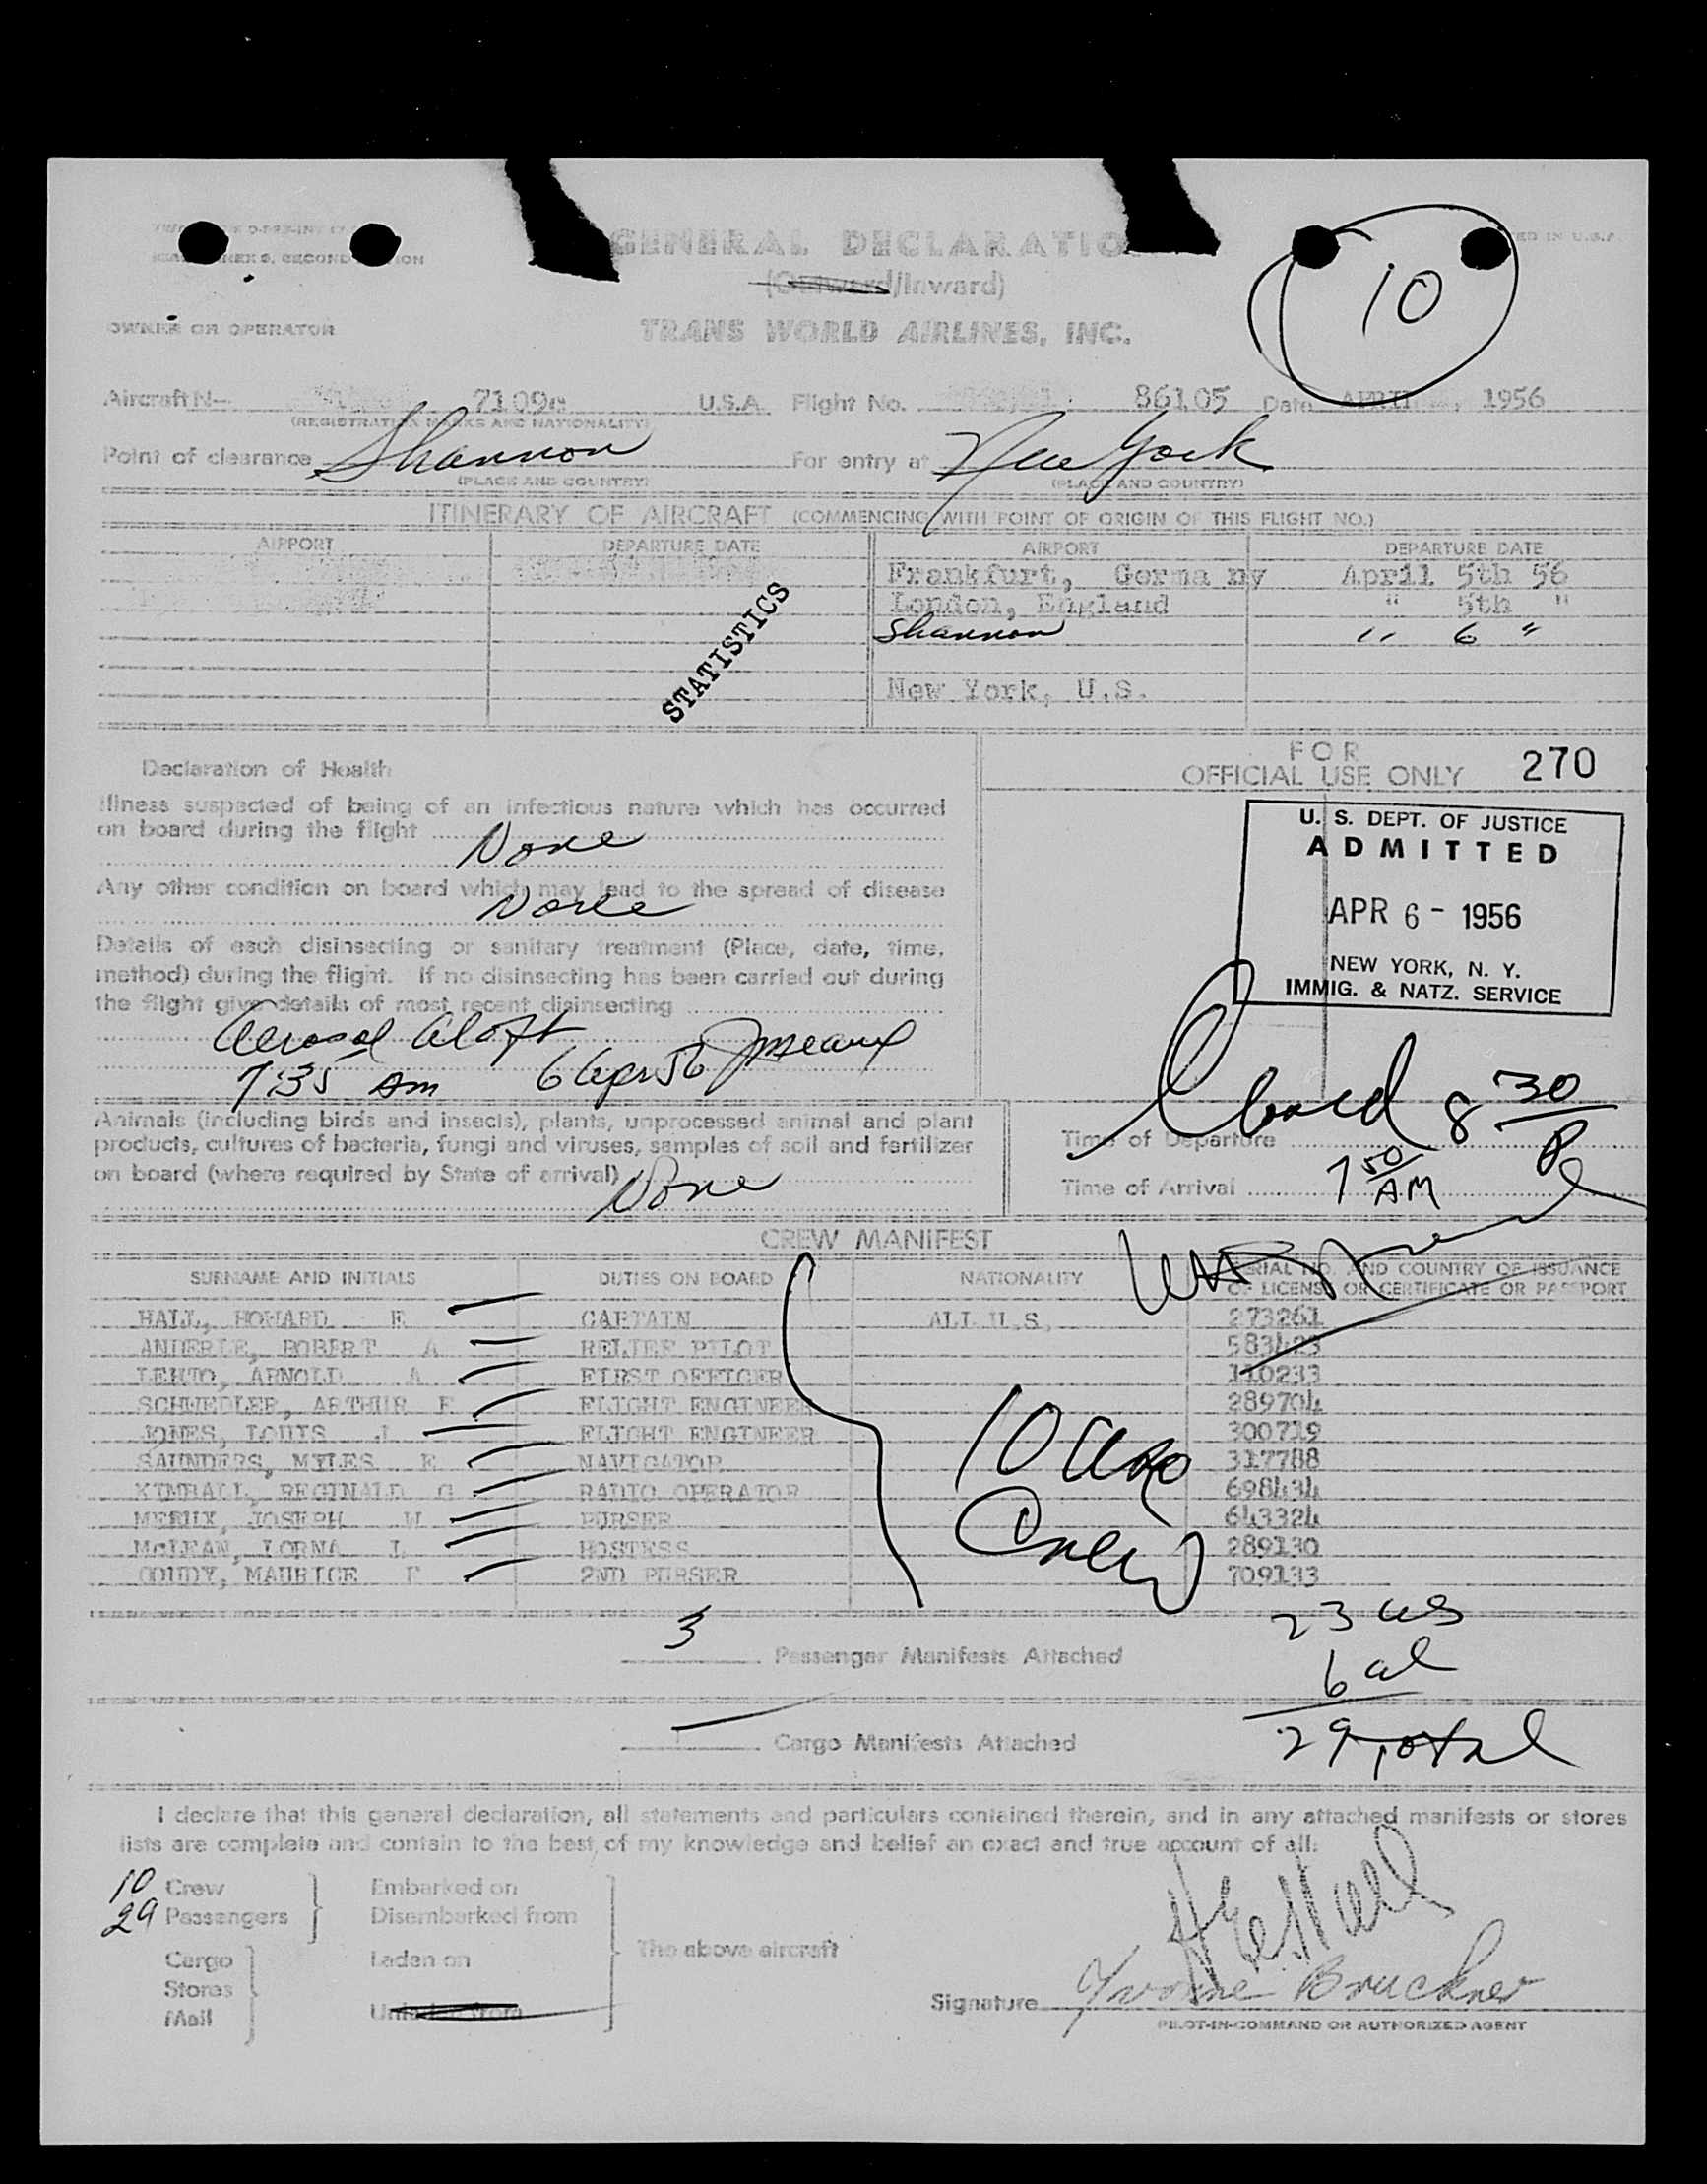 GENERAL DECLARATIO
(Outward/Inward)
10
OWNER OR OPERATOR
TRANS WORLD AIRLINES, INC.
Aircraft N- 7109c U.S.A. Flight No. 86105 Date APRIL 1956
(REGISTRATION MARKS AND NATIONALITY)
Point of clearance Shannon For entry at New York
(PLACE AND COUNTRY) (PLACE AND COUNTRY)
ITINERARY OF AIRCRAFT (COMMENCING WITH POINT OF ORIGIN OF THIS FLIGHT NO.)
AIRPORT DEPARTURE DATE AIRPORT DEPARTURE DATE
Frankfurt, Germa ny April 5th 56
London, England " 5th "
Shannon " 6 "
New York, U.S.
STATISTICS
FOR
OFFICIAL USE ONLY 270
Declaration of Health
Illness suspected of being of an infectious nature which has occurred
on board during the flight None
Any other condition on board which may lead to the spread of disease
None
Details of each disinsecting or sanitary treatment (Place, date, time,
method) during the flight. If no disinsecting has been carried out during
the flight give details of most recent disinsecting
Aerosol Aloft
7:35 Am 6 Apr 56
U. S. DEPT. OF JUSTICE
ADMITTED
APR 6 - 1956
NEW YORK, N. Y.
IMMIG. & NATZ. SERVICE
Animals (including birds and insects), plants, unprocessed animal and plant
products, cultures of bacteria, fungi and viruses, samples of soil and fertilizer
on board (where required by State of arrival) None
8 30
Time of Departure
Time of Arrival 7 50 AM
CREW MANIFEST
SURNAME AND INITIALS DUTIES ON BOARD NATIONALITY SERIAL NO. AND COUNTRY OF ISSUANCE
OF LICENSE OR CERTIFICATE OR PASSPORT
HALL, HOWARD E CAPTAIN ALL U.S. 273261
ANDERLE, ROBERT A RELIEF PILOT 583423
LEHTO, ARNOLD A FIRST OFFICER 110233
SCHWEDLER, ARTHUR F FLIGHT ENGINEER 289704
JONES, LOUIS J FLIGHT ENGINEER 300719
SAUNDERS, MYLES E NAVIGATOR 317788
KIMBALL, REGINALD G RADIO OPERATOR 698434
MERUX, JOSEPH W PURSER 643324
McLEAN, LORNA L HOSTESS 289130
COUDY, MAURICE F 2ND PURSER 709133
10
Crew
3 Passenger Manifests Attached
23 us
6 al
29 total
Cargo Manifests Attached
I declare that this general declaration, all statements and particulars contained therein, and in any attached manifests or stores
lists are complete and contain to the best of my knowledge and belief an exact and true account of all:
10 Crew Embarked on
29 Passengers Disembarked from
The above aircraft
Cargo Laden on
Stores
Mail Unladen from
H E Hall
Signature Yvonne Bruckner
PILOT-IN-COMMAND OR AUTHORIZED AGENT